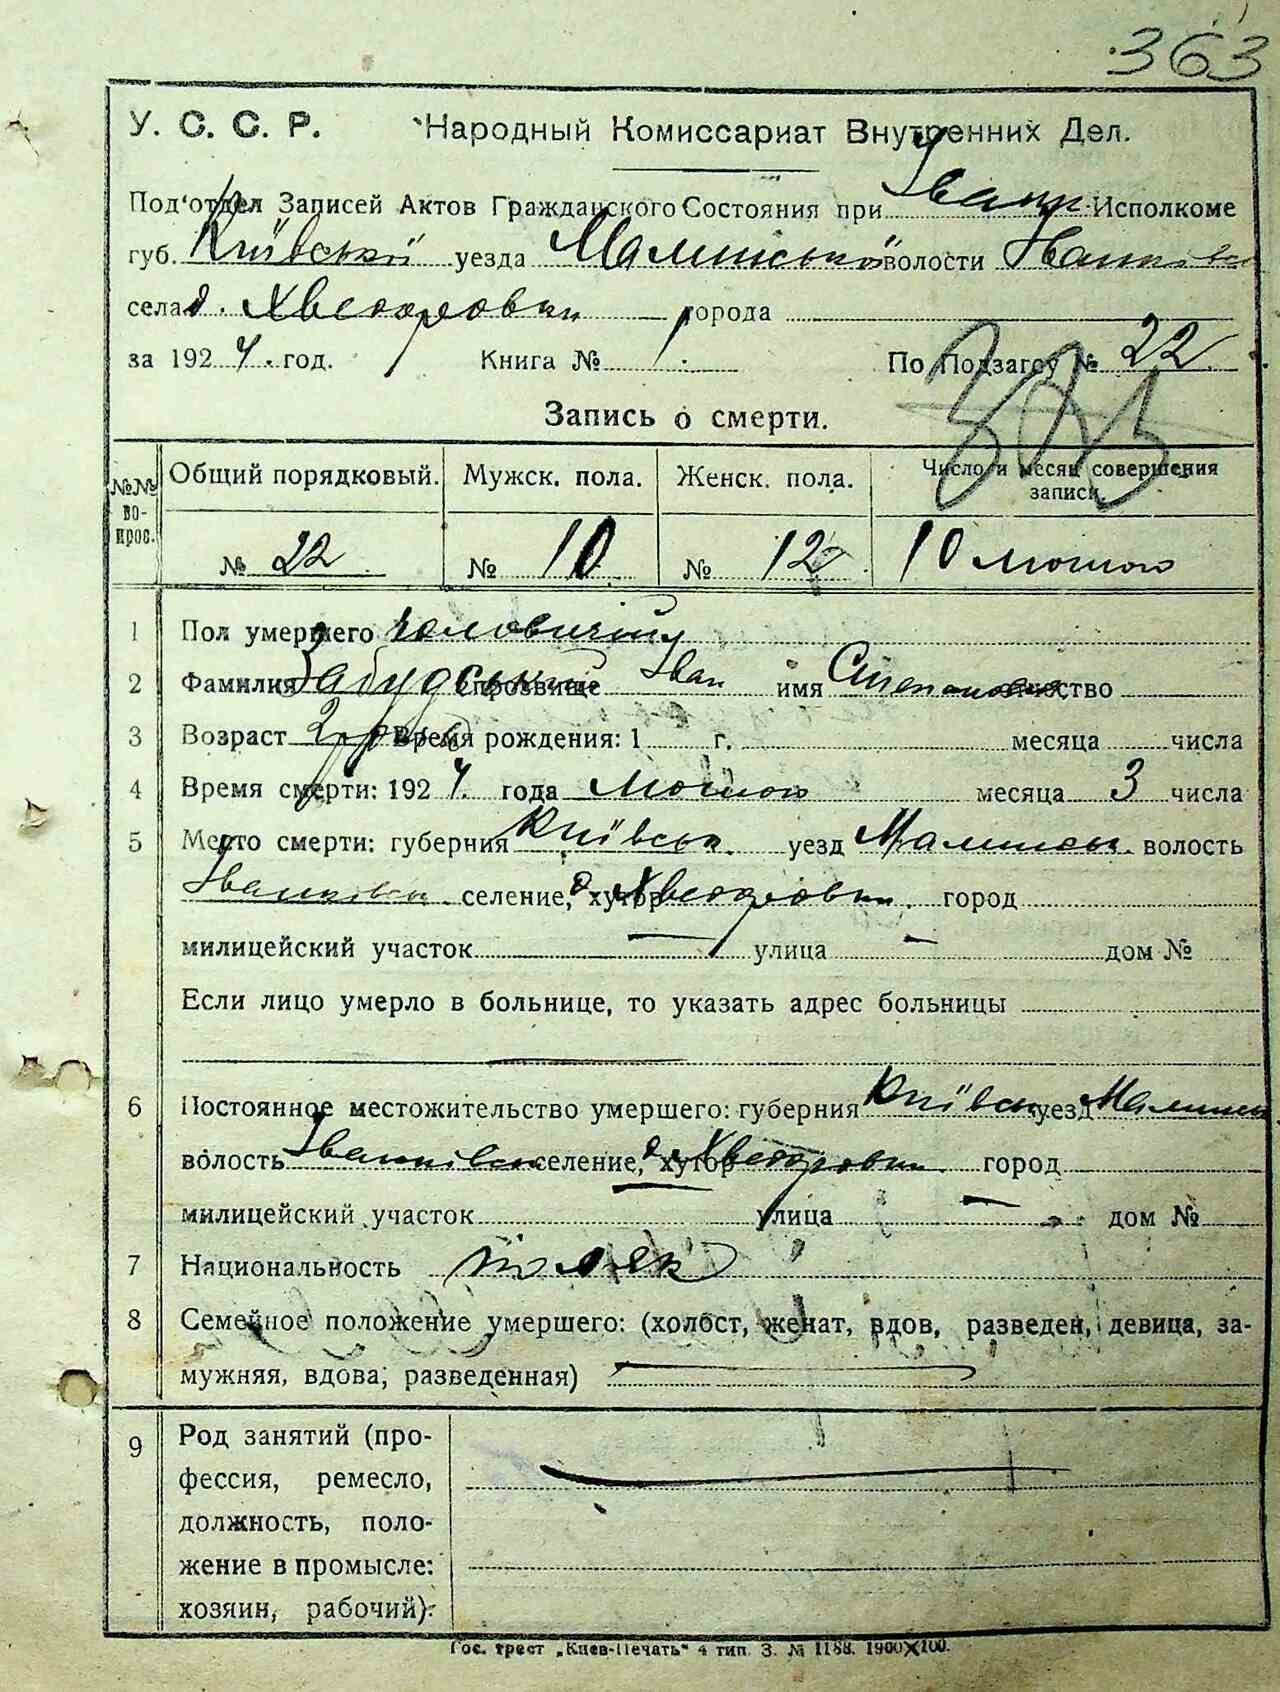 363
У. С. С. Р. Народный Комиссариат Внутренних Дел.
Под'отдел Записей Актов Гражданского Состояния при Іванк. Исполкоме
губ. Київської уезда Малинської волости Іванківськ
села д. Хведоровки города
за 1924 год. Книга № 1. По Подзагсу № 22
Запись о смерти.
№№ во-прос. Общий порядковый. Мужск. пола. Женск. пола. Число и месяц совершения записи
№ 22 № 10 № 12 10 лютого
1 Пол умершего чоловичий
2 Фамилия Забудський прозвище Іван имя Степанович отчество
3 Возраст 2 роки Время рождения: 1 г. месяца числа
4 Время смерти: 1924 года лютого месяца 3 числа
5 Место смерти: губерния Київськ. уезд Малинськ. волость
Іванківськ. селение, хутор д. Хведоровки. город
милицейский участок — улица — дом №
Если лицо умерло в больнице, то указать адрес больницы
6 Постоянное местожительство умершего: губерния Київськ уезд Малинськ
волость Іванківськ селение, хутор д. Хведоровки город
милицейский участок — улица — дом №
7 Национальность поляк
8 Семейное положение умершего: (холост, женат, вдов, разведен, девица, за-
мужняя, вдова, разведенная) —
9 Род занятий (про-
фессия, ремесло,
должность, поло-
жение в промысле:
хозяин, рабочий):
Гос. трест „Киев-Печать“ 4 тип. З. № 1188. 1900×100.